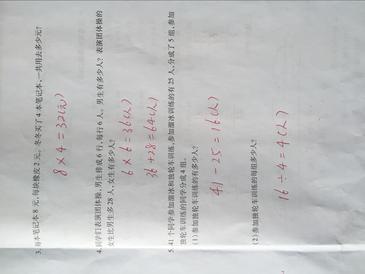 3. 每本笔记本8元,每块橡皮2元。冬冬买了4本笔记本,一共用去多少元?
8×4=32(元)
4. 同学们表演团体操,男生排成6行,每行6人。男生有多少人?表演团体操的
女生比男生多28人,女生有多少人?
6×6=36(人)
36+28=64(人)
5. 41个同学参加滑冰和独轮车训练,参加滑冰训练的有25人,分成了5组,参加
独轮车训练的同学分成4组。
(1)参加独轮车训练的有多少人?
41-25=16(人)
(2)参加独轮车训练的每组多少人?
16÷4=4(人)